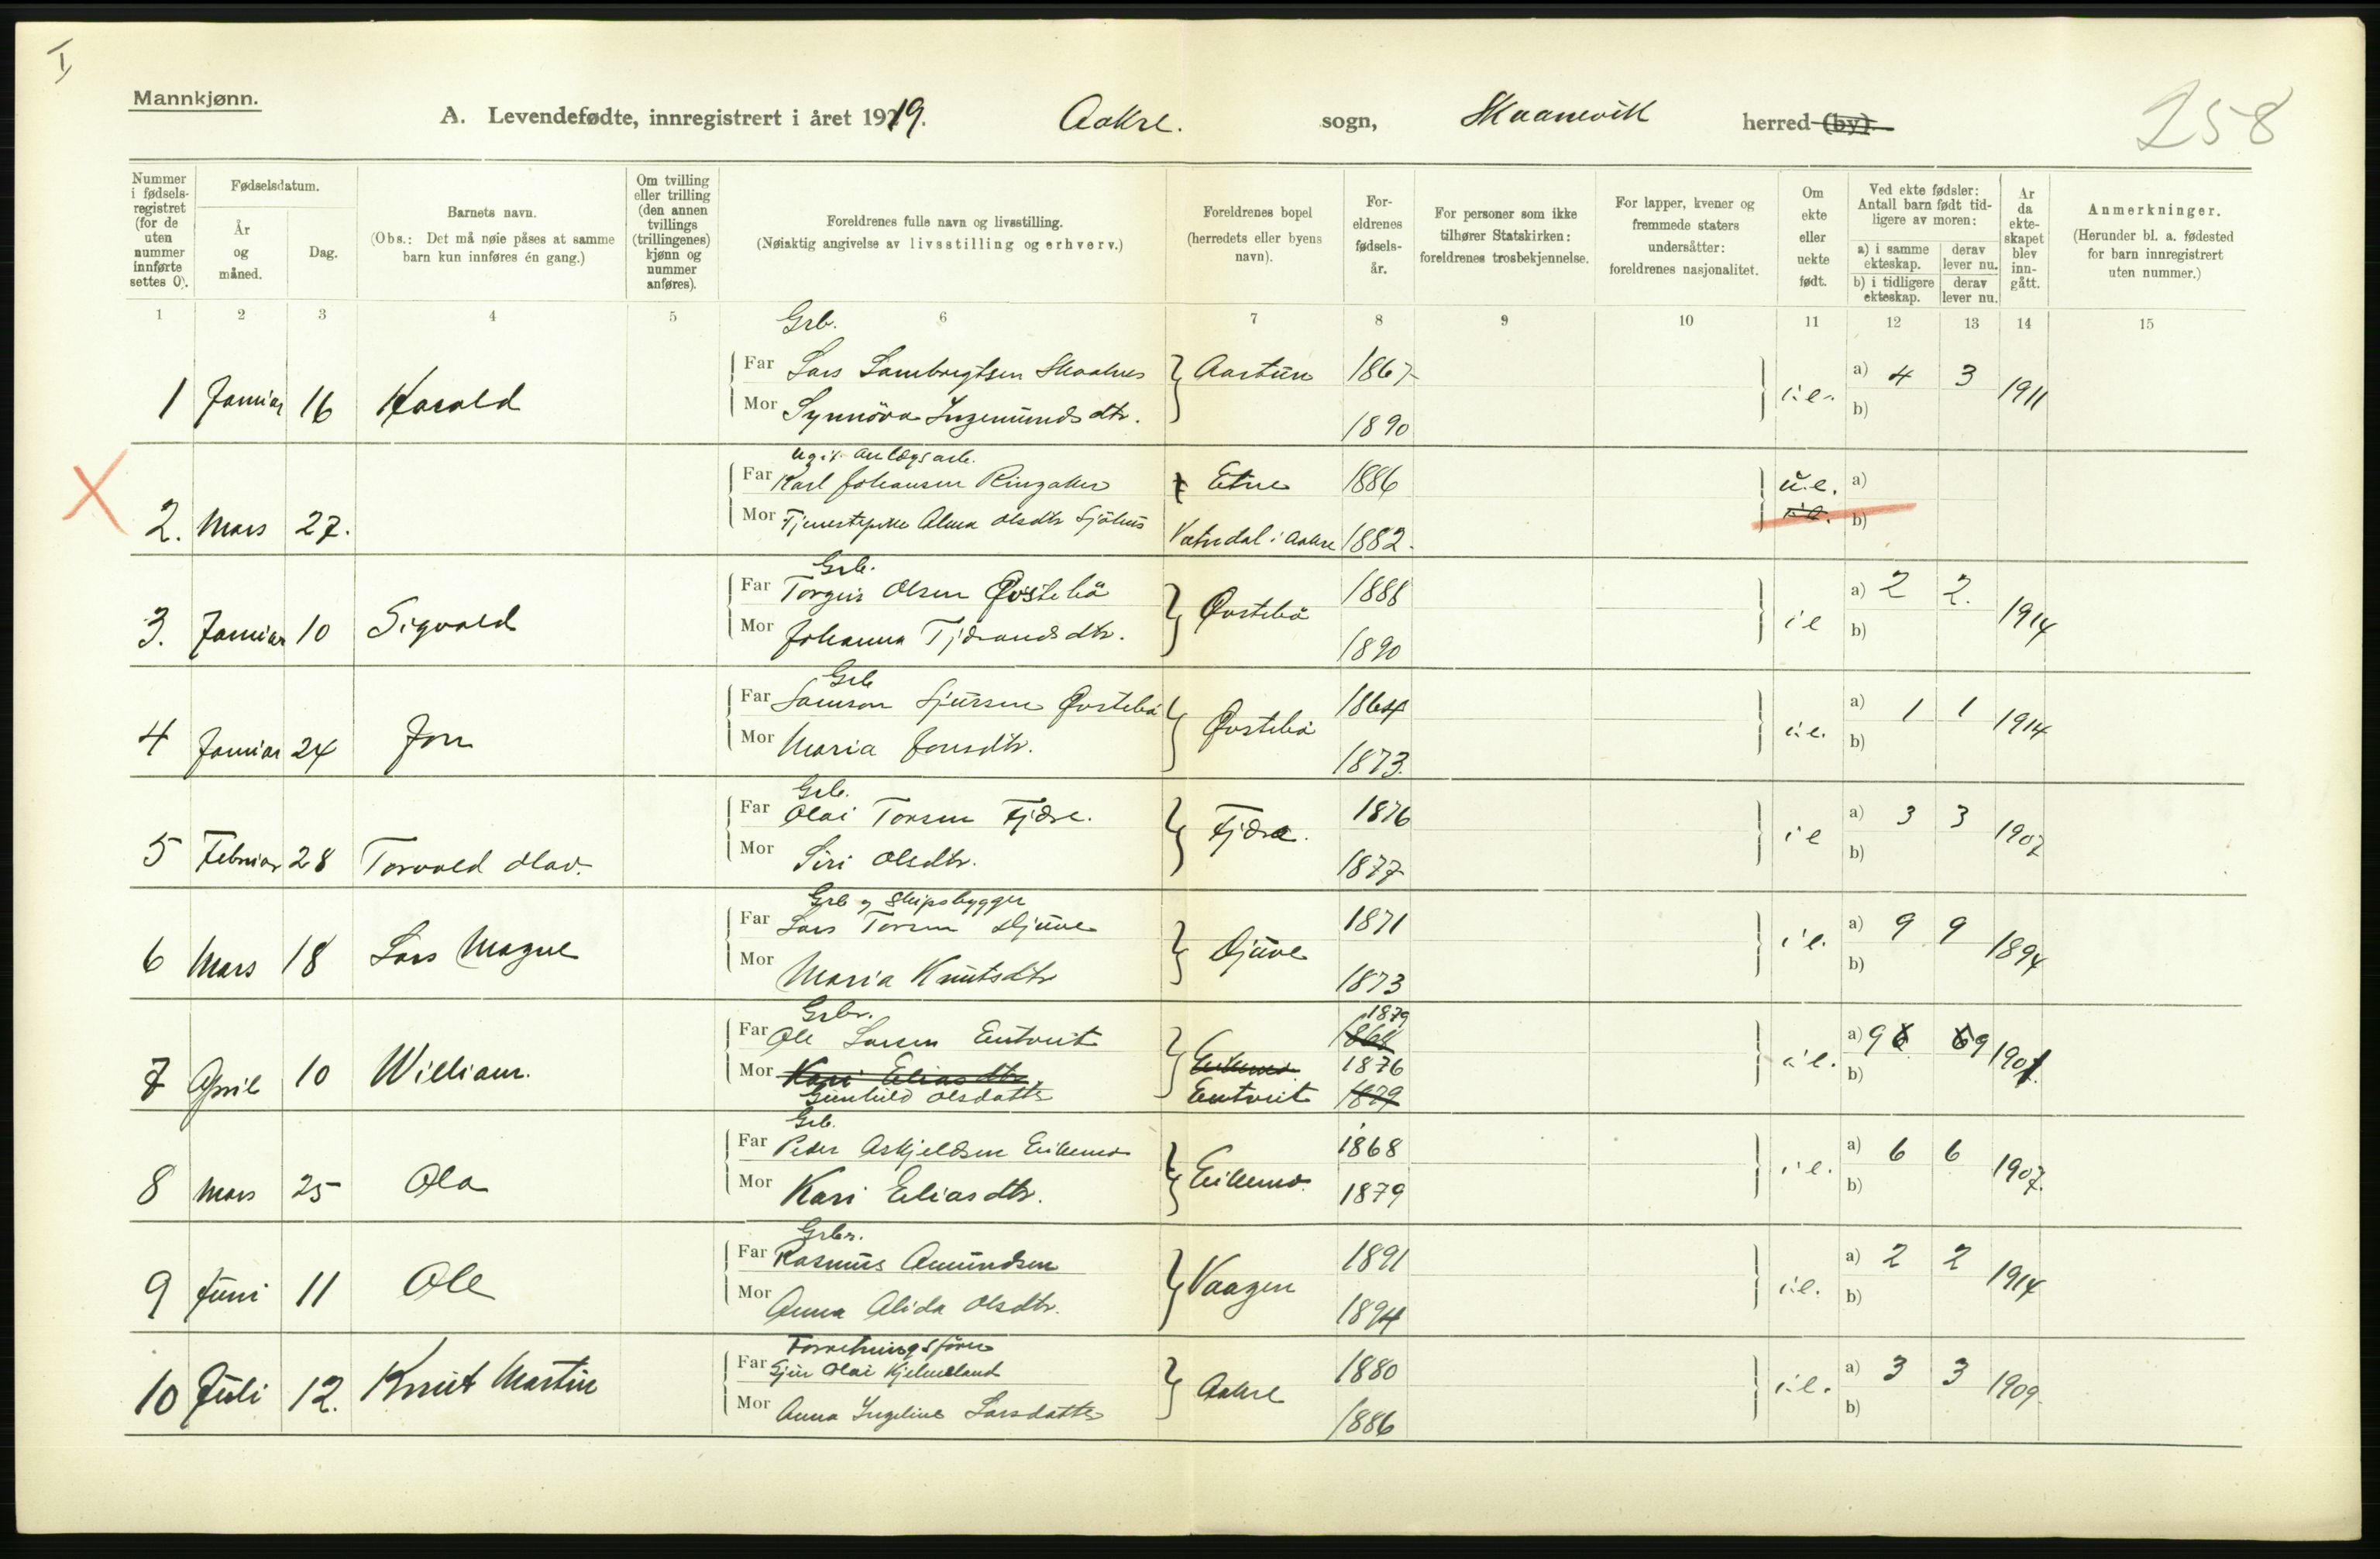 I
Mannkjønn.
A. Levendefødte, innregistrert i året 1919. Aakre. sogn, Skaanevik herred (by).
258
Nummer i fødselsregistret (for de uten nummer innførte settes 0).
Fødselsdatum.
År og måned.
Dag.
Barnets navn.
(Obs.: Det må nøie påses at samme barn kun innføres én gang.)
Om tvilling eller trilling (den annen tvillings (trillingenes) kjønn og nummer anføres).
Foreldrenes fulle navn og livsstilling.
(Nøiaktig angivelse av livsstilling og erhverv.)
Foreldrenes bopel (herredets eller byens navn).
For-eldrenes fødsels-år.
For personer som ikke tilhører Statskirken: foreldrenes trosbekjennelse.
For lapper, kvener og fremmede staters undersåtter: foreldrenes nasjonalitet.
Om ekte eller uekte født.
Ved ekte fødsler: Antall barn født tid-ligere av moren:
a) i samme ekteskap. derav lever nu.
b) i tidligere ekteskap. derav lever nu.
År da ekte-skapet blev inn-gått.
Anmerkninger.
(Herunder bl. a. fødested for barn innregistrert uten nummer.)
1 2 3 4 5 6 7 8 9 10 11 12 13 14 15
Grb.
Far Lars Lambregtsen Skaalnes Aartun 1867
1 Januar 16 Harald i.e. a) 4 3 1911
Mor Synnöva Ingemundsdtr. 1890 b)
ugift anlægsarb.
Far Karl Johansen Ringaker Etne 1886 u.e. a)
2. Mars 27.
Mor Tjenestepike Alma Olsdtr Sjöhus Vatndal i Aakre 1882. b)
Grb.
Far Torgeis Olsen Øvstebö Øvstebö 1888
3. Januar 10 Sigvald i e a) 2 2. 1914
Mor Johanna Tjerandsdtr. 1890 b)
Grb
Far Samson Sjursen Øvstebö Øvstebö 1864
4 Januar 24 Jon i.e. a) 1 1 1914
Mor Maria Jonsdtr. 1873. b)
Grb.
Far Olai Torsen Fjære. Fjære. 1876
5 Februar 28 Torvald Olav. i e a) 3 3 1907
Mor Siri Olsdtr. 1877 b)
Grb og Skipsbygger
Far Lars Torsen Djuve Djuve 1871
6 Mars 18 Lars Magne i.e. a) 9 9 1894
Mor Maria Knutsdtr 1873 b)
Grbr. 1879
Far Ole Larsen Entveit Eikemo 1868
7 April 10 William. i.e. a) 9 6 6 9 1901
Mor Kari Eliasdtr. 1876 b)
Gunhild Olsdatter Entveit 1879
Grb.
Far Peder Askjeldsen Eikemo Eikemo. 1868
8 Mars 25 Ola i.e. a) 6 6 1907.
Mor Kari Eliasdtr. 1879 b)
Grbr.
Far Rasmus Amundsen Vaagen 1891
9 Juni 11 Ole i.e. a) 2 2 1914
Mor Anna Alida Olsdtr. 1894 b)
Forretningsförer
Far Sjur Olai Kjelmeland Aakre 1880
10 Juli 12. Knut Martin i.e. a) 3 3 1909.
Mor Anna Ingeline Larsdatter 1886 b)